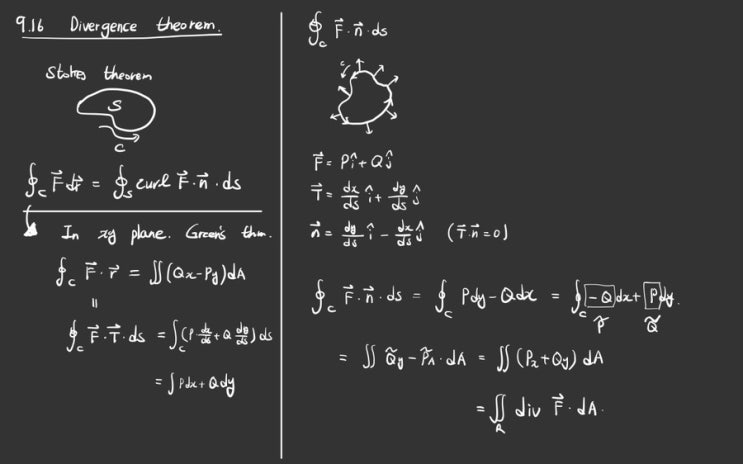 9.16 Divergence theorem.
Stokes theorem
S
C
∮_C F⃗ dr⃗ = ∮_S curl F⃗ · n⃗ · ds
In xy plane. Green's thm.
∮_C F⃗ · r⃗ = ∬(Qx - Py)dA
=
∮_C F⃗ · T⃗ · ds = ∫_C (P · dx/ds + Q dy/ds) ds
= ∫ Pdx + Qdy
∮_C F⃗ · n⃗ · ds
C
F⃗ = Pî + Qĵ
T⃗ = dx/ds î + dy/ds ĵ
n⃗ = dy/ds î - dx/ds ĵ (T⃗ · n⃗ = 0)
∮_C F⃗ · n⃗ · ds = ∮_C Pdy - Qdx = ∮_C -Q dx + P dy.
P̃ Q̃
= ∬ Q̃y - P̃x · dA = ∬ (Px + Qy) dA
= ∬_R div F⃗ · dA.